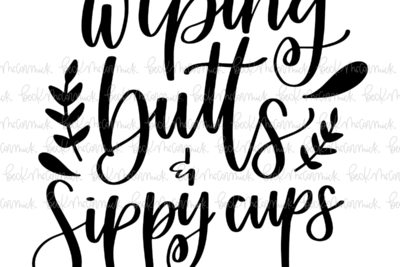 Wiping
Butts
&
Sippy cups